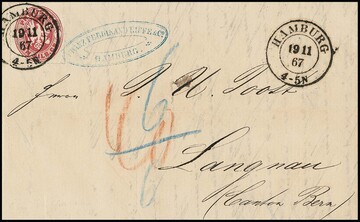 HAMBURG
19 11
67
4-5N
HAMBURG
19 11
67
4-5N
HAMBURG
Herrn J. U. Joost
Langnau
(Canton Bern)